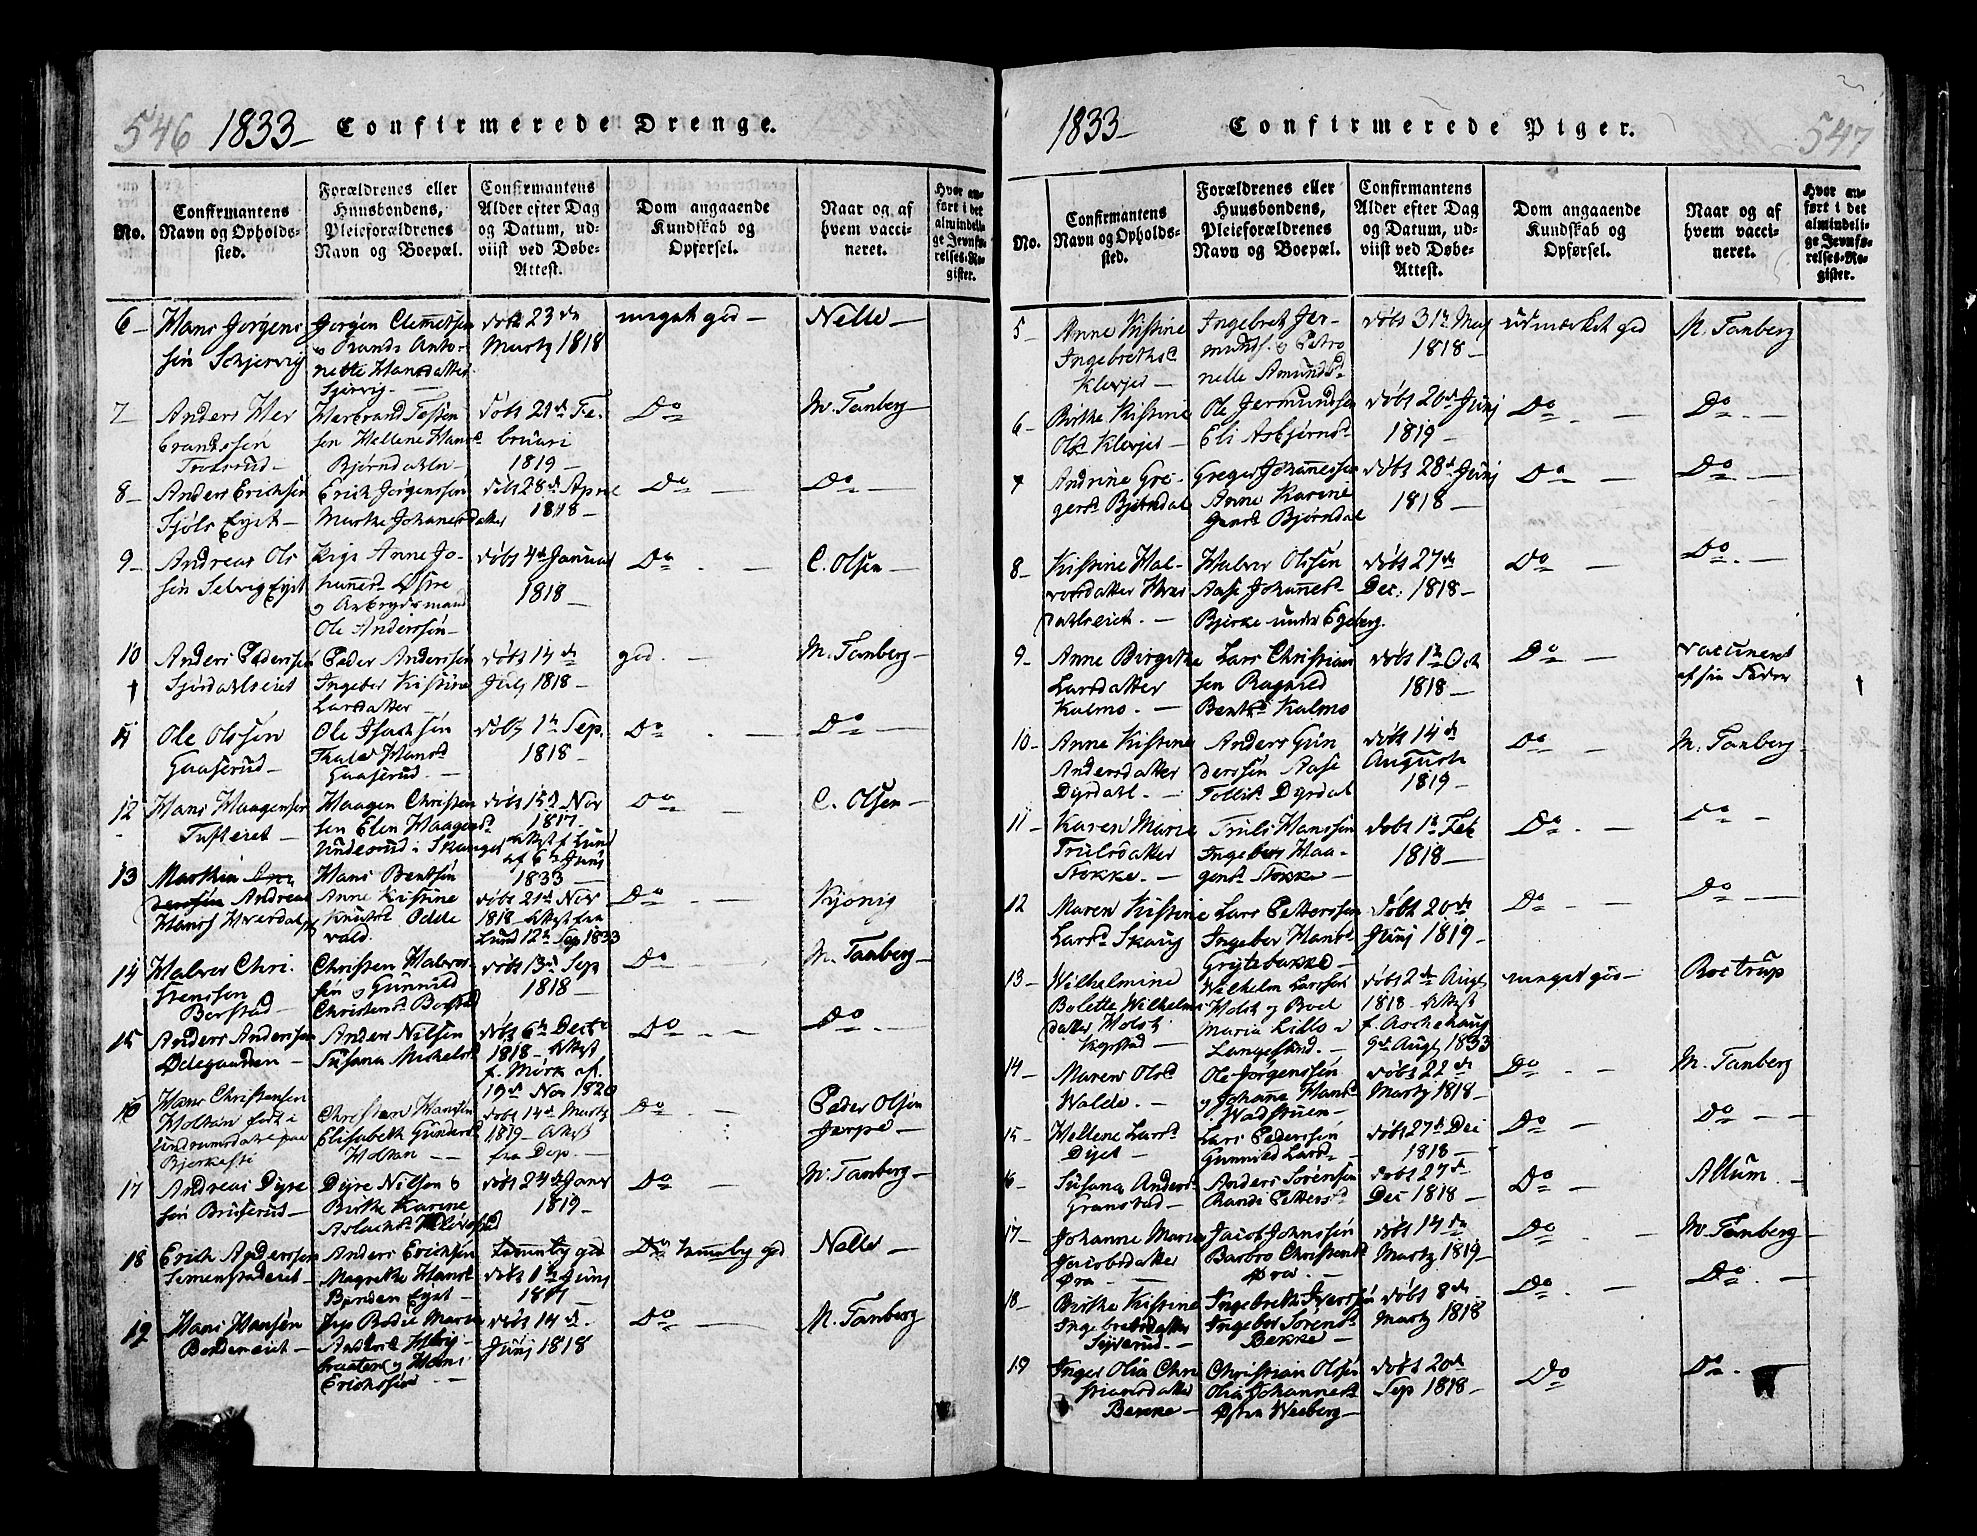 546 1833 – Confirmerede Drenge.
No.
Confirmantens
Navn og Opholds-
sted.
Forældrenes eller
Huusbondens,
Pleieforældrenes
Navn og Boepæl.
Confirmantens
Alder efter Dag
og Datum, ud-
viist ved Døbe-
Attest.
Dom angaaende
Kundskab og
Opførsel.
Naar og af
hvem vacci-
neret.
Hvor an-
ført i det
almindeli-
ge Jevnfø-
relses-Re-
gister.
6 – Hans Jørgens
sen Schjervig
Jørgen Clemetsen
og Randi Anto-
nette Hansdatter
døbt 23 de
Martz 1818
meget god –
Nelle –
7 – Anders Her
brandssen
Herbrand
sen Hellene Hansd
Bjørndalen –
døbt 21 d Fe.
bruari
1819 –
Do –
M. Tanberg –
8 – Anders Erichsen
Fjøls Eyet –
Erich Jørgenssen
Marthe Johanesdatter
døbt 28 d April
1818 –
Do –
Do –
9 – Andreas Ols
sen Selvig Eyet
Pige Anne Jo-
hannesd Østre
og Arbeydsmand
Ole Anderssen –
døbt 4 d Januar
1818 –
Do –
C. Olsen –
10 Anders Pederssen
Peder Anderssen
Ingebor Kistine
Larsdatter –
døbt 14 de
July 1818 –
god. –
M. Tanberg –
11 Ole Olssen
Gaaserud –
Ole Isachsen
Hansd
Gaaserud. –
døbt 1 te Sep.
1818 –
Do –
Do –
12 Hans Haagensen
Tufteeiet –
Haagen Christen
sen Elen Haagensd
i Skauger
døbt 15 d Nov
1817 –
Attest f. Lund
af 6 te Junj
1833 –
Do –
C. Olsen –
13 Marthin
Andreas
Hans Bentsen
Anne Kistine
Knutsd Odde
vald.
døbt 21 d Nov
1818 – Attest fra
Lund 12 te Sep 1833
Do –
Kjønig
14 Halvor Chri.
stenssen
Berstad
Christen Halvor
sen og Gunnild
Christensd Berstad
døbt 13 d Sep
1818 –
Do –
M. Tanberg –
15 Anders Anderssen
Ødegaarden –
Anders Nilsen
Susana Michelsd
døbt 6 te Decbr
1818 – Attest
f. Mörk af.
19 d Nov 1820
Do –
Do –
16 Hans Christensen
Holtan født i
Bjerkesti
Christen Hanssen
Elisabeth Gundersd
Holtan –
døbt 14 d Martz
1819 – Attest
fra Dep. –
Do –
Peder Olsen
Jarpe –
17 Andreas Dyre
sen Bruserud –
Dyre Nilsen &
Birthe Karine
Aslachsd
døbt 24 d Janr
1819 –
Do –
M. Tanberg –
18 Erich Anderssen
Semenstadeiet –
Anders Erichsen
Magrethe Hansd
Eyet –
temmelig god
døbt 1 te Junj
1817 –
Do temmelig god
Nelle –
19 Hans Hansen
Bordereiet –
Pige Bodil Marie
Andersd
braaten og Hans
Erichssen –
døbt 14 d.
Junj 1818
Do –
M. Tanberg
1833 – Confirmerede Piger. 547
No.
Confirmantens
Navn og Opholds-
sted.
Forældrenes eller
Huusbondens,
Pleieforældrenes
Navn og Boepæl.
Confirmantens
Alder efter Dag
og Datum, ud-
viist ved Døbe-
Attest.
Dom angaaende
Kundskab og
Opførsel.
Naar og af
hvem vacci-
neret.
Hvor an-
ført i det
almindeli-
ge Jevnfø-
relses-Re-
gister.
5 – Anne Kistine
Ingebrethsd
Klevjer –
Ingebret Jer-
munds. og Petro
nelle Amundsd
døbt 31 te May
1818 –
udmærket god
M. Tanberg
6 – Birthe Kistine
Olsd Klevjer –
Ole Jermundsen
Eli Asbjørnsd
døbt 20 d Junj
1819 –
Do –
Do –
7 Andrine Gre-
gersd Bjørndal
Greger Johannessen
Anne Karine
Jensd Bjørndal
døbt 28 d Junj
1818 –
Do –
Do –
8 – Kistine Hal-
vorsdatter
Halvor Olssen
Aase Johannesd
Bjerke under Egeberg.
døbt 27 de
Dec. 1818 –
Do –
Do –
9 – Anne Birgitte
Larsdatter
Kalmo. –
Lars Christian
sen Ragnild
Bentsd Kalmo
døbt 1 te Oct
1818 –
Do –
vaccineret
af sin Fader
10 – Anne Kistine
Andersdatter
Dyrdahl. –
Anders Gun
derssen Aase
Dyrdal
døbt 14 de
Augusti
1819 –
Do –
M. Tanberg
11 – Karen Marie
Trulsdatter
Stokke. –
Truls Hanssen
Ingebor Haa-
gensd Stokke –
døbt 1 te Feb
1818 –
Do –
Do –
12 Maren Kistine
Larsd Skaug
Lars Petterssen
Ingebor Hansd
Grytebakke –
døbt 20 de
Junj 1819 –
Do –
Do –
13 – Wilhelmine
Bolette Wilhelms
datter Holst
Kopstad –
Wilhelm Larssen
Holst og Bodel
Maria Lillo i
Langesund. –
døbt 2 de Augt
1818 – Attest
f. Aschehoug
9 d Augt 1833
meget god –
Bøctrup
14 – Maren Olsd
Walde. –
Ole Jørgenssen
og Johanne Hansd
Wadstuen –
døbt 22 de
Martz 1818 –
Do –
M. Tanberg
15 – Hellene Larsd
Dyet –
Lars Pederssen
Gunnild Larsd –
døbt 27 de Dec
1818 –
Do –
Do –
6 – Susana Andersd
Granstad –
Anders Sørensen
Randi Pettersd
døbt 27 d
Dec 1818 –
Do –
Allum. –
17 – Johanne Marie
Jacobsdatter
Øra –
Jacob Johnssen
Barbro Christensd
Øra. –
døbt 14 de
Martz 1819 –
Do –
M. Tanberg –
18 – Birthe Kistine
Ingebretsdatter
Syverud. –
Ingebreth Iverssen
Ingebor Sørensd
Bekke –
døbt 8 de
Martz 1818
Do –
Do –
19 Inger Olia Chri
stiansdatter
Bekke –
Christian Olsen
Olia Johannesd
Østre Weeberg –
døbt 20 de
Sep 1818 –
Do
Do –